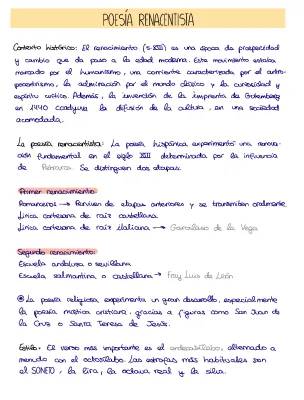 POESÍA RENACENTISTA
Contexto histórico: El renacimiento (s. XVI) es una época de prosperidad
y cambio que da paso a la edad moderna. Este movimiento estaba
marcado por el humanismo, una corriente caracterizada por el antro-
pocentrismo, la admiración por el mundo clásico y la curiosidad y
espíritu crítico. Además, la invención de la imprenta de Gutemberg
en 1440 contribuye la difusión de la cultura, en una sociedad
acomodada.
La poesía renacentista: La poesía hispánica experimentó una renova-
ción fundamental en el siglo XVI determinada por la influencia
de Petrarca. Se distinguen dos etapas.
Primer renacimiento
Romanceros → Perviven de etapas anteriores y se transmiten oralmente
Lírica cortesana de raíz castellana
Lírica cortesana de raíz italiana → Garcilaso de la Vega
Segundo renacimiento:
Escuela andaluza o sevillana
Escuela salmantina o castellana → Fray Luis de León
La poesía religiosa experimenta un gran desarrollo, especialmente
la poesía mística cristiana, gracias a figuras como San Juan de
la Cruz o Santa Teresa de Jesús.
Estilo: El verso más importante es el endecasílabo, alternado a
menudo con el octosílabo. Las estrofas más habituales son
el SONETO, la lira, la octava real y la silva.